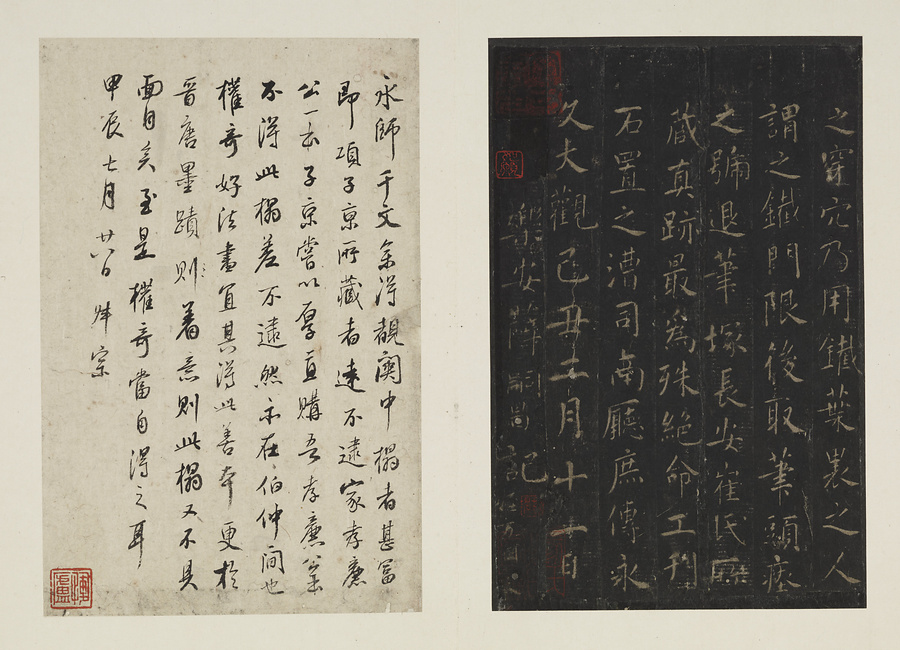 之穿穴乃用鐵葉裹之人
謂之鐵門限後取筆頭瘞
之號退筆塚長安崔氏所
藏真跡最為殊絕命工刊
石置之漕司南廳庶傳永
久大觀己丑二月十一日
樂安薛嗣昌記
永師千文余得中榻者甚富
即項子京所藏者遠不逮家孝廉
公一本子京嘗以厚直購吾孝廉公
不得此榻差不逮然亦在伯仲間也
權奇好法書宜其得此善本更於
晉唐墨蹟則着意則此榻又不具
面目矣至是權奇當自得之耳
甲辰七月廿八日 宗